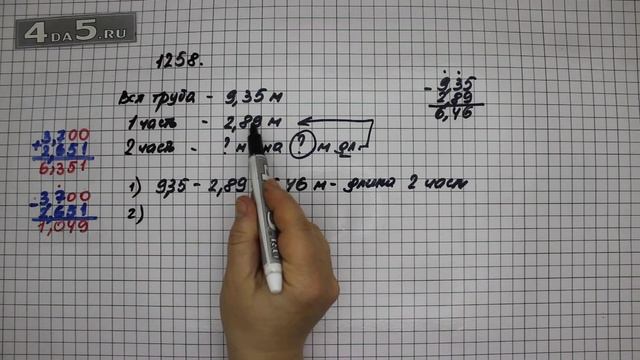 4DA5.RU
1258.
Вся труба - 9,35 м
1 часть - 2,89 м
2 часть - ? м на ? м дл.
1) 9,35 - 2,89 6,46 м - длина 2 част
2)
- 9,35
2,89
6,46
+ 3,700
2,651
6,351
- 3,700
2,651
1,049